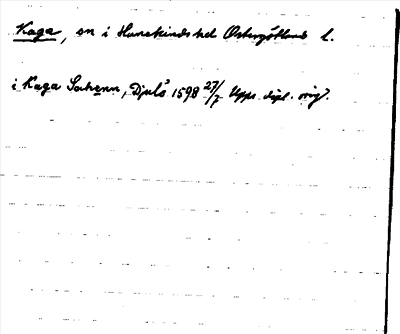 Kaga, sn i Hanekinds hd Östergötlands l.
i Kaga Sochenn, Djulö 1598 27/7 Upps. dipl. orig.